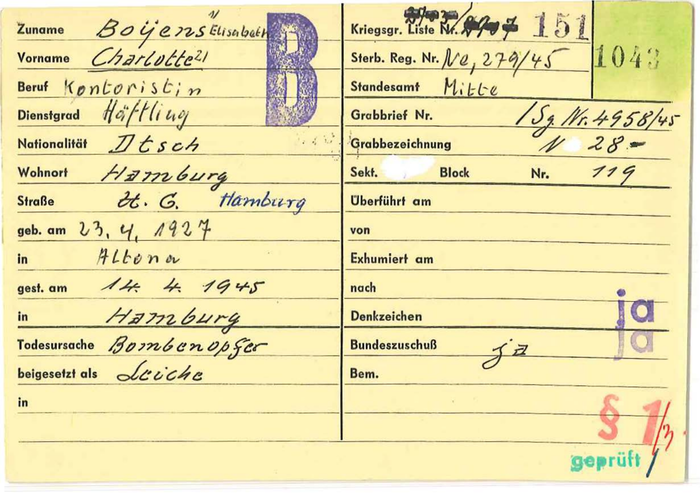 Zuname Boijens Elisabeth
Vorname Charlotte 21
Beruf Kontoristin
Dienstgrad Häftling
Nationalität Dtsch
Wohnort Hamburg
Straße U. G. Hamburg
geb. am 23. 4. 1927
in Altona
gest. am 14. 4. 1945
in Hamburg
Todesursache Bombenopfer
beigesetzt als Leiche
in
B
Kriegsgr. Liste Nr. 151
1043
Sterb. Reg. Nr. 279/45
Standesamt Mitte
Grabbrief Nr. 1 Sg Nr. 4958/45
Grabbezeichnung N 28-
Sekt. Block Nr. 119
Überführt am
von
Exhumiert am
nach
Denkzeichen ja
ja
Bundeszuschuß ja
Bem.
§ 1/3
geprüft